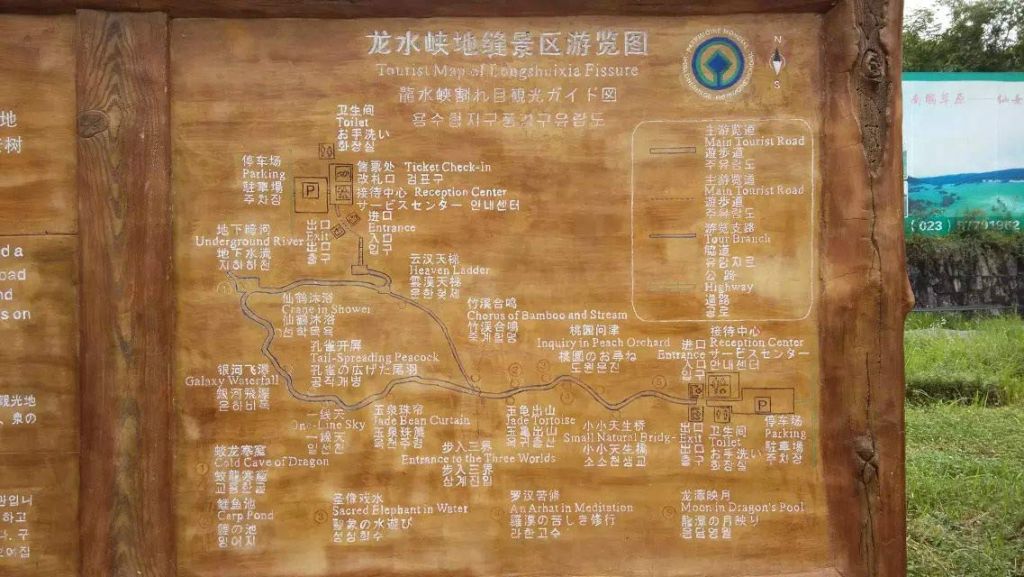 龙水峡地缝景区游览图
Tourist Map of Longshuixia Fissure
龍水峡割れ目観光ガイド図
N
S
卫生间
Toilet
お手洗い
화장실
停车场
Parking
駐車場
주차장
P
售票处 Ticket Check-in
改札口 검표구
接待中心 Reception Center
サービスセンター 안내센터
出口
Exit
出口
출구
进口
Entrance
入口
입구
地下暗河
Underground River
地下水流
지하하천
云汉天梯
Heaven Ladder
雲漢天梯
运
仙鹤沐浴
Crane in Shower
仙鶴沐浴
선학목욕
竹溪合鸣
Chorus of Bamboo and Stream
竹渓合鳴
孔雀开屏
Tail-Spreading Peacock
孔雀の広げた尾羽
공작개병
桃园问津
Inquiry in Peach Orchard
桃園のお尋ね
도원문진
银河飞瀑
Galaxy Waterfall
銀河飛瀑
은하비폭
一线天
One-Line Sky
一線天
일선천
玉泉珠帘
Jade Bean Curtain
玉龟出山
Jade Tortoise
小小天生桥
Small Natural Bridg-
小小天生橋
소소천생교
步入三界
Entrance to the Three Worlds
步入三界
삼계진입
蛟龙寒窟
Cold Cave of Dragon
蛟龍寒窟
교룡한굴
鲤鱼池
Carp Pond
鯉の池
잉어지
圣像戏水
Sacred Elephant in Water
聖象の水遊び
성상희수
罗汉苦修
An Arhat in Meditation
羅漢の苦しき修行
라한고수
龙潭映月
Moon in Dragon's Pool
龍潭の月映り
용담영월
主游览道
Main Tourist Road
遊歩道
주유람도
主游览道
Main Tourist Road
遊歩道
주유람도
游览支路
Tour Branch
脇道
유람지로
公路
Highway
道路
공로
接待中心
Reception Center
サービスセンター
안내센터
进口
Entrance
入口
입구
P
出口
Exit
出口
출구
卫生间
Toilet
お手洗い
화장실
停车场
Parking
駐車場
주차장
(023)